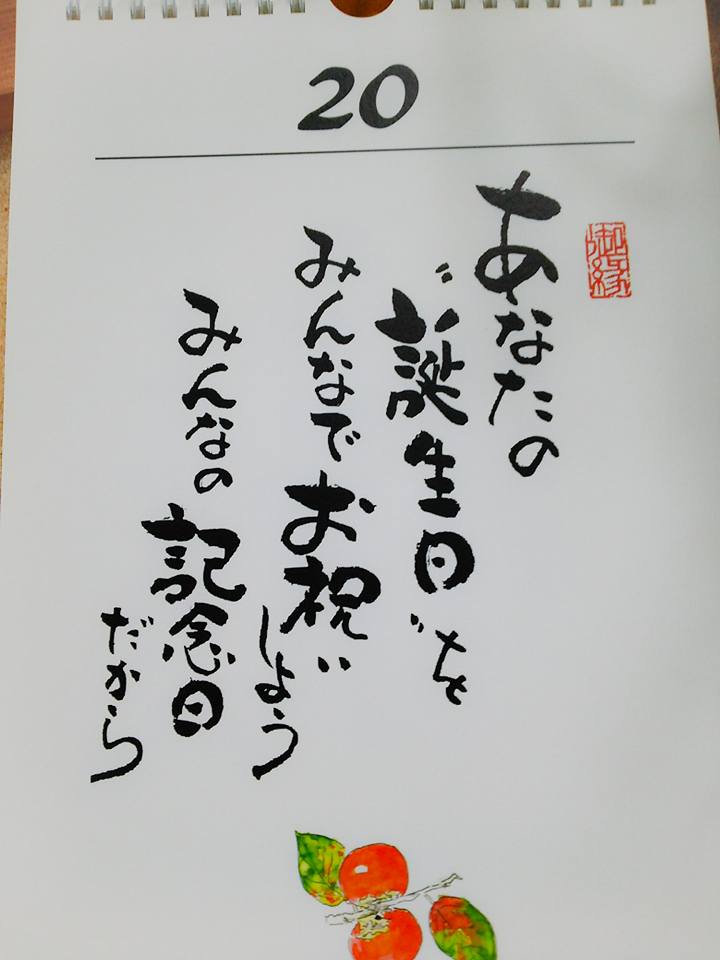 20
御縁
あなたの
〝誕生日〟を
みんなで お祝い しよう
みんなの 記念日 だから